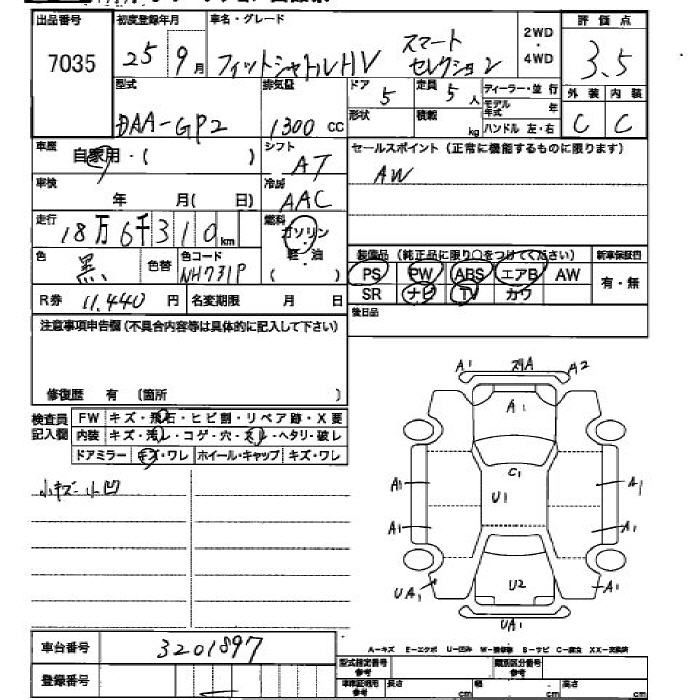 出品番号 初度登録年月 車名・グレード 2WD・4WD 評価点
7035 25 9月 フィットシャトルHV スマートセレクション 3.5
型式 排気量 ドア 定員 ディーラー・並行 外装 内装
DAA-GP2 1300 cc 5 5人 モデル年式 年 C C
形状 積載 kg ハンドル 左・右
車歴 自家用・( ) シフト AT セールスポイント(正常に機能するものに限ります)
車検 年 月(日) 冷房 AAC AW
走行 18万6千310km 燃料 ガソリン・軽・油 ( )
色 黒 色替 色コード NH731P 装備品(純正品に限り○をつけてください) 新車保証書
PS PW ABS エアB AW 有・無
R券 11,440円 名変期限 月 日 SR ナビ TV カワ
後日品
注意事項申告欄(不具合内容等は具体的に記入して下さい)
修復歴 有 〔箇所 〕
検査員記入欄 FW キズ・飛石・ヒビ割・リペア跡・X要
内装 キズ・汚レ・コゲ・穴・スレ・ヘタリ・破レ
ドアミラー キズ・ワレ ホイール・キャップ キズ・ワレ
小キズ 小凹
A1 A2
A1
C1
A1 U1 A1
A1 A1
UA1 U2 A1
UA1
車台番号 3201897 A-キズ E-エクボ U-凹み W-補修跡 S-サビ C-腐食 XX-交換済
登録番号 型式指定番号 参考 類別区分番号 参考
車庫証明用 参考 長さ cm 幅 cm 高さ cm